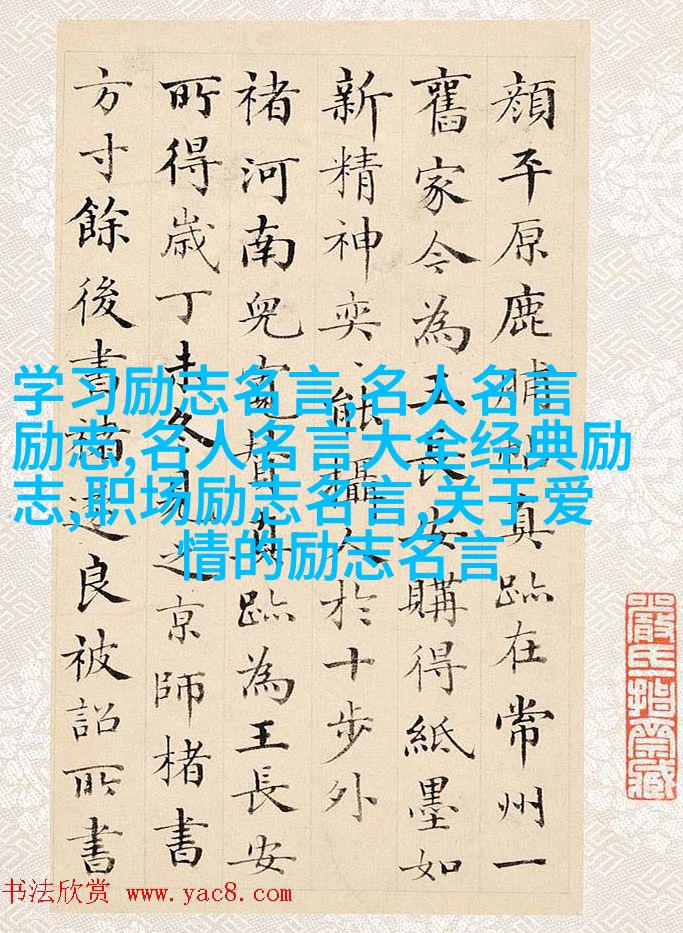 顏平原鹿脯帖真跡在常州一
舊家今為王長安購得紙墨如
新精神奕、能攝人於十步外
褚河南兒寬贊真跡為王長安
所得歲丁未冬見之京師楮書
方寸餘後書褚遂良被詔所書
学习励志名言,名人名言
励志,名人名言大全经典励
志,职场励志名言,关于爱
情的励志名言
书法欣赏 www.yac8.com